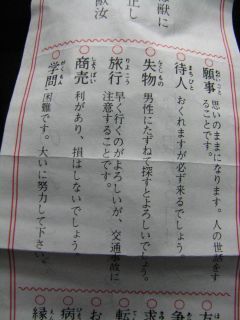 獣に
正し
献汝
願事 ねがいごと 思いのままになります。人の世話をす
ることです。
待人 まちびと おくれますが必ず来るでしょう。
失物 うしもの 男性にたずねて探すとよろしいでしょう。
旅行 りょこう 早く行くのがよろしいが、交通事故に
注意することです。
商売 しょうばい 利があり、損はしないでしょう。
学問 がくもん 困難です。大いに努力して下さい。
方
争
求
転
お
病
縁